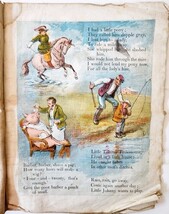 I had a little pony,
They called him dapple gray;
I lent him to a lady
To ride a mile
She whipped him, she slashed
him,
She rode him through the mire
I would not lend my pony now
For all the lady's hire.
Barber, barber, shave a pig,
How many hairs will make a
wig?
Four and twenty, that's
enough,
Give the poor barber a pinch
of snuff.
Little Tommy
Lived in a
He
man's ditches.
Rain, rain, go away,
Come again another day;
Little Johnny wants to play.